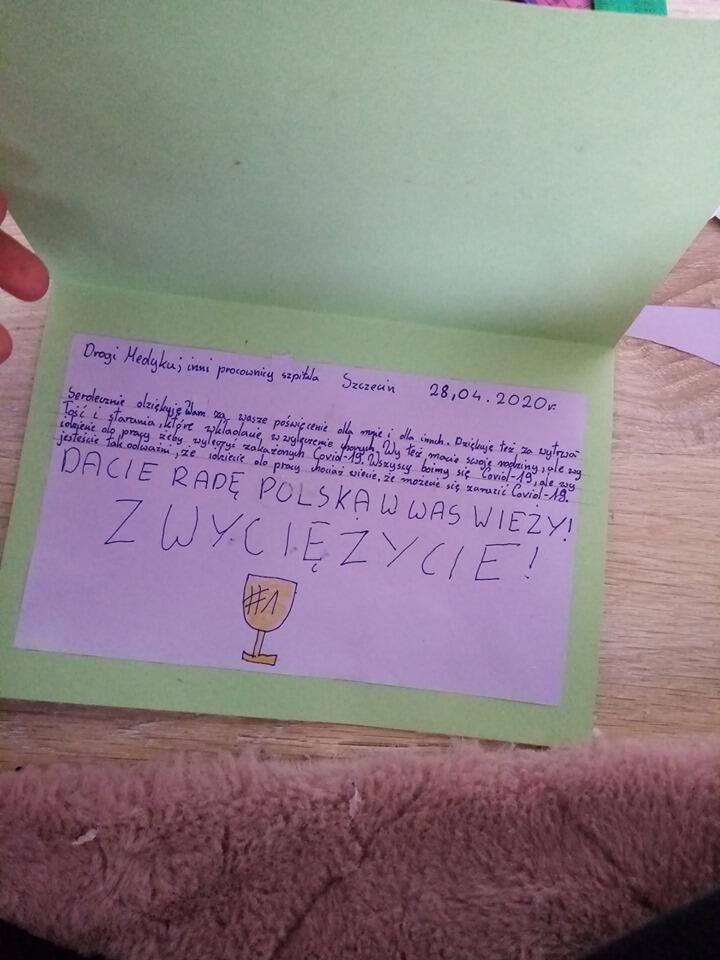 Drogi Medyku, inni pracownicy szpitala Szczecin 28,04.2020r.
Serdecznie dziękuję Wam za wasze poświęcenie dla mnie i dla innch. Dziękuje też za wytrwa-
łość i starania, które wkładacie w wyleczenie chorych. Wy też macie swoją rodziny, ale wy
idziecie do pracy żeby wyleczyć zakażonych Covid-19. Wszyscy boimy się Covid-19, ale wy
jesteście tak odważni, że idziecie do pracy chociaż wiecie, że możecie się zarazić Covid-19.
DACIE RADĘ POLSKA W WAS WIEŻY!
ZWYCIĘŻYCIE!
#1